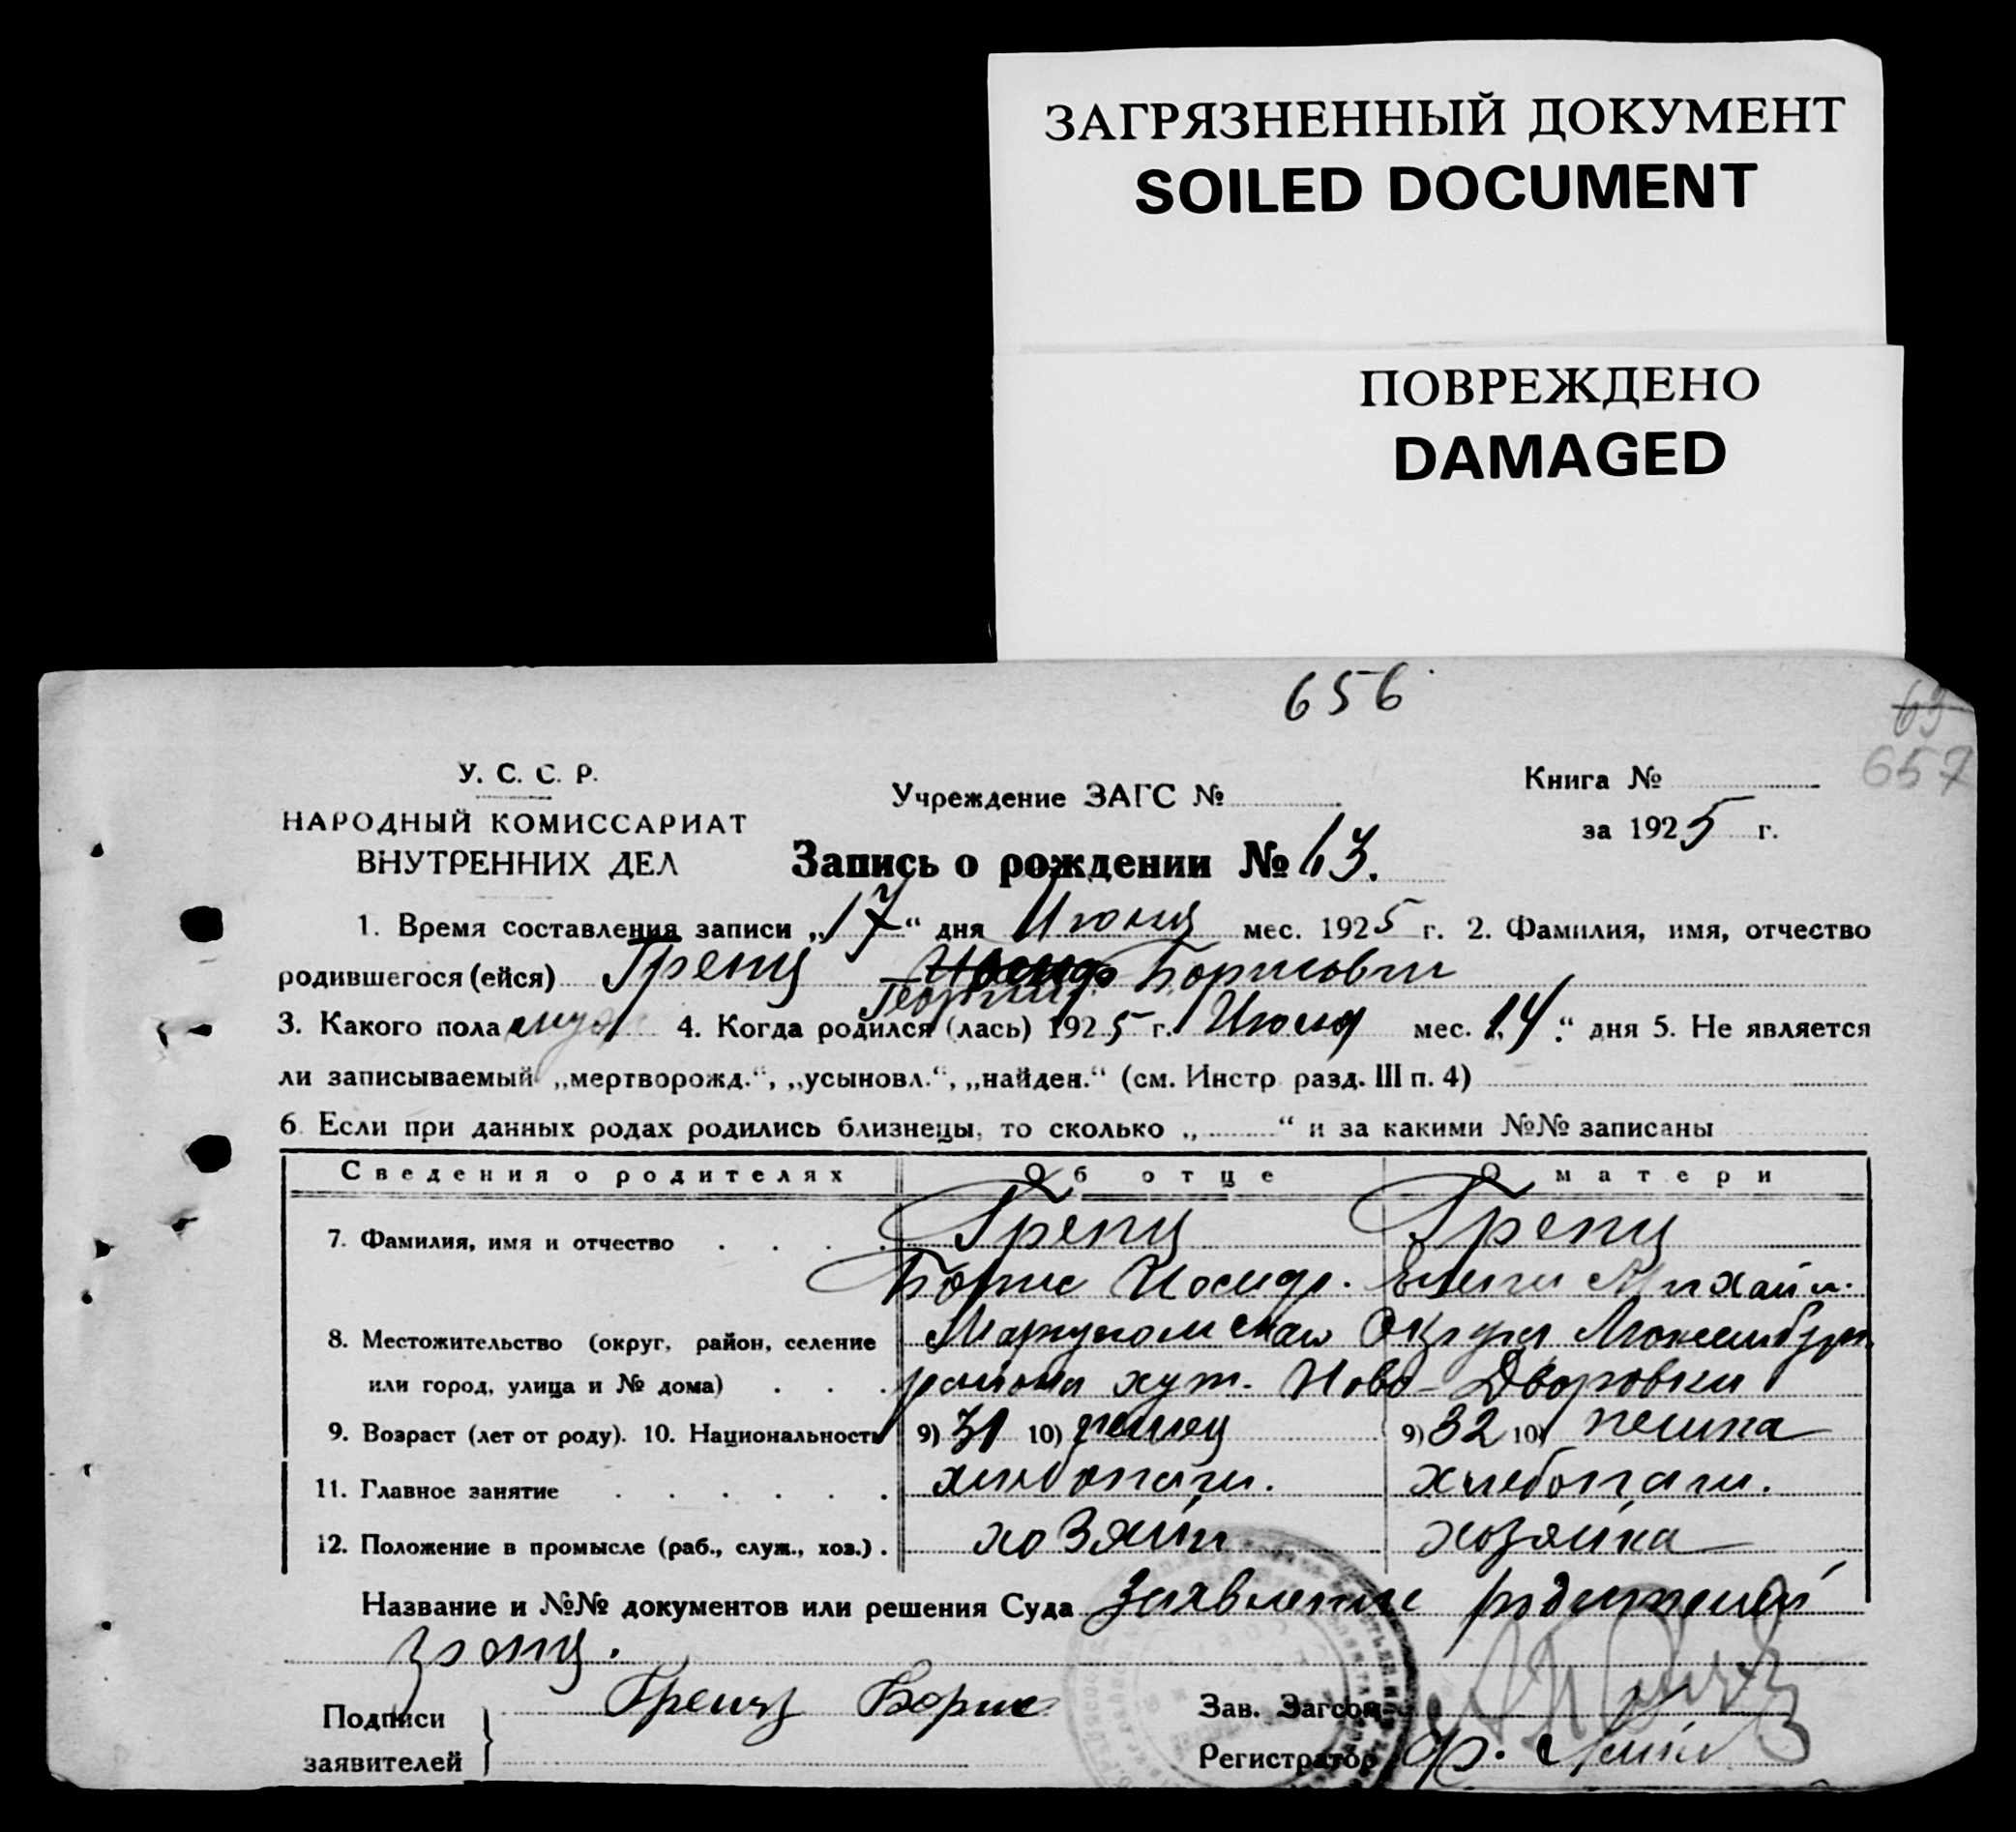 ЗАГРЯЗНЕННЫЙ ДОКУМЕНТ
SOILED DOCUMENT
ПОВРЕЖДЕНО
DAMAGED
656
63
657
У. С. С. Р.
НАРОДНЫЙ КОМИССАРИАТ
ВНУТРЕННИХ ДЕЛ
Учреждение ЗАГС №
Книга №
за 1925 г.
Запись о рождении № 63.
1. Время составления записи „17“ дня Июня мес. 1925 г. 2. Фамилия, имя, отчество
родившегося (ейся) Гренц Иосиф Борисович
Георгий
3. Какого пола муж 4. Когда родился (лась) 1925 г. Июня мес. „14“ дня 5. Не является
ли записываемый „мертворожд.“, „усыновл.“, „найден.“ (см. Инстр. разд. III п. 4)
6. Если при данных родах родились близнецы, то сколько „ “ и за какими №№ записаны
Сведения о родителях Об отце О матери
7. Фамилия, имя и отчество Гренц Гренц
Борис Иосиф. Елена Михайл.
8. Местожительство (округ, район, селение Мариупольская Округа Люксембург.
или город, улица и № дома) района хут. Ново-Дворовки
9. Возраст (лет от роду). 10. Национальность 9) 31 10) немец 9) 32 10) немка
11. Главное занятие хлебопаш. хлебопаш.
12. Положение в промысле (раб., служ., хоз.) хозяин хозяйка
Название и №№ документов или решения Суда заявление родителей
Подписи
заявителей
Гренц Борис
Зав. Загсом
Регистратор